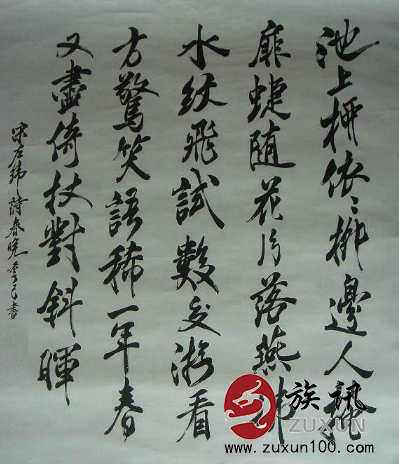 池上柳依〻柳邊人掩
扉蝶随花片落燕拂
水紋飛試數交游看
方驚笑語稀一年春
又盡倚杖對斜暉
宋左緯詩春晚書
族訊
ZUXUN
www.zuxun100.com